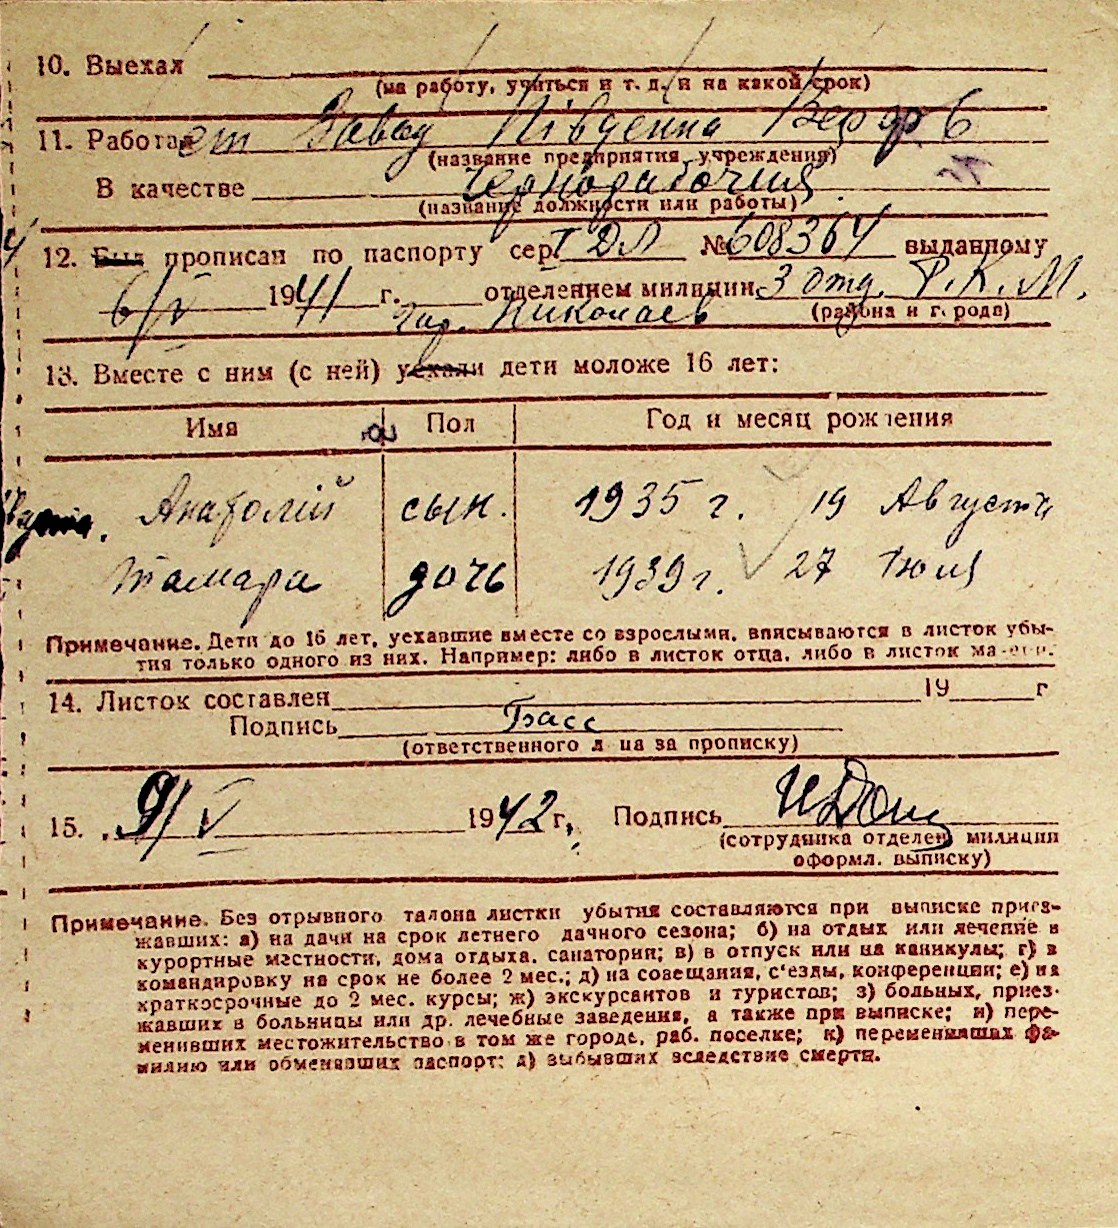 10. Выехал
(на работу, учиться и т. д. и на какой срок)
11. Работает Завод Південна Верф 6
(название предприятия, учреждения)
В качестве Чернорабочия
(название должности или работы)
12. Был прописан по паспорту сер. I ДЛ № 608364 выданному
6/V 1941 г. отделением милиции 3 отд. Р.К.М.
гор. Николаев (района и города)
13. Вместе с ним (с ней) уехали дети моложе 16 лет:
Имя Пол Год и месяц рождения
Анатолій сын. 1935 г. 19 Августа
Тамара дочь 1939 г. 27 Июля
Примечание. Дети до 16 лет, уехавшие вместе со взрослыми, вписываются в листок убы-
тия только одного из них. Например: либо в листок отца, либо в листок матери.
14. Листок составлен 19 г
Подпись Басс
(ответственного лица за прописку)
15. 9/V 1942 г. Подпись
(сотрудника отделен. милиции
оформл. выписку)
Примечание. Без отрывного талона листки убытия составляются при выписке приез-
жавших: а) на дачи на срок летнего дачного сезона; б) на отдых или лечение в
курортные местности, дома отдыха, санатории; в) в отпуск или на каникулы; г) в
командировку на срок не более 2 мес.; д) на совещания, с'езды, конференции; е) на
краткосрочные до 2 мес. курсы; ж) экскурсантов и туристов; з) больных, приез-
жавших в больницы или др. лечебные заведения, а также при выписке; и) пере-
менивших местожительство в том же городе, раб. поселке; к) переменивших фа-
милию или обменявших паспорт; д) выбывших вследствие смерти.